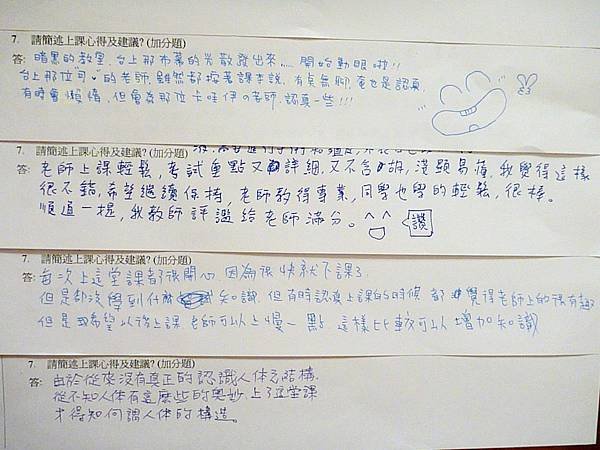 7. 請簡述上課心得及建議? (加分題)
答: 暗黑的教室,台上那布幕的光散發出來..... 閃的動眼啦!!
台上那位"可"的老師,雖然都按著課本說,有點無聊,竟也是認真,
有時會懶惰,但會為那位卡哇伊の老師,認真一些!!!
7. 請簡述上課心得及建議? (加分題)
答: 老師上課輕鬆,考試重點又詳細,又不含胡,淺顯易懂,我覺得這樣
很不錯,希望繼續保持,老師教得專業,同學也學的輕鬆,很棒。
順道一提,我教師評鑑給老師滿分。^ ^ 讚
7. 請簡述上課心得及建議? (加分題)
答: 每次上這堂課都很開心 因為很快就下課了
但是都沒學到什麼 知識 但有時認真上課的時候 都 覺得老師上的很有趣
但是 希望以後上課 老師可以上慢一點 這樣比較可以增加知識
7. 請簡述上課心得及建議? (加分題)
答: 由於從來沒有真正的認識人体之結構,
從不知人体有這麼些的奧妙 上了這堂課
才得知何謂人体的構造。